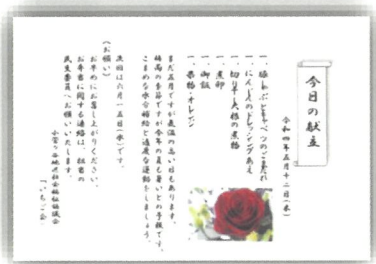 今日の献立
令和四年五月十二日(木)
一、豚しゃぶとキャベツのごまだれ
一、にんじんのドレッシングあえ
一、切り干し大根の煮物
一、煮卵
一、御飯
一、果物・オレンジ
まだ五月ですが気温の高い日もあります。
梅雨の季節ですが今年の夏も暑いとの予報です。
こまめな水分補給と適度な運動をしましょう。
次回は六月一五日(水)です。
(お願い)
お早めにお召し上がりください。
お弁当に関する連絡は、担当の
民生委員へお願いいたします。
小菅ヶ谷地区社会福祉協議会
「いちご会